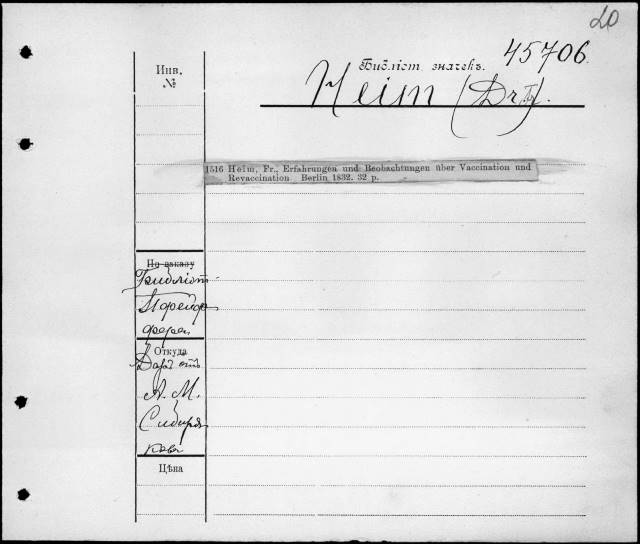 20
45706
Библіот. значекъ.
Инв.
№
Heim (Dr Fr).
1516 Heim, Fr., Erfahrungen und Beobachtungen über Vaccination und
Revaccination Berlin 1832. 32 p.
По заказу
Библіот.
Пфейф
фера
Откуда
Даръ отъ
А. М.
Сибиря
кова
Цѣна